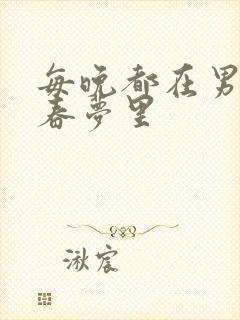 每晚都在男
春梦里
湫宸